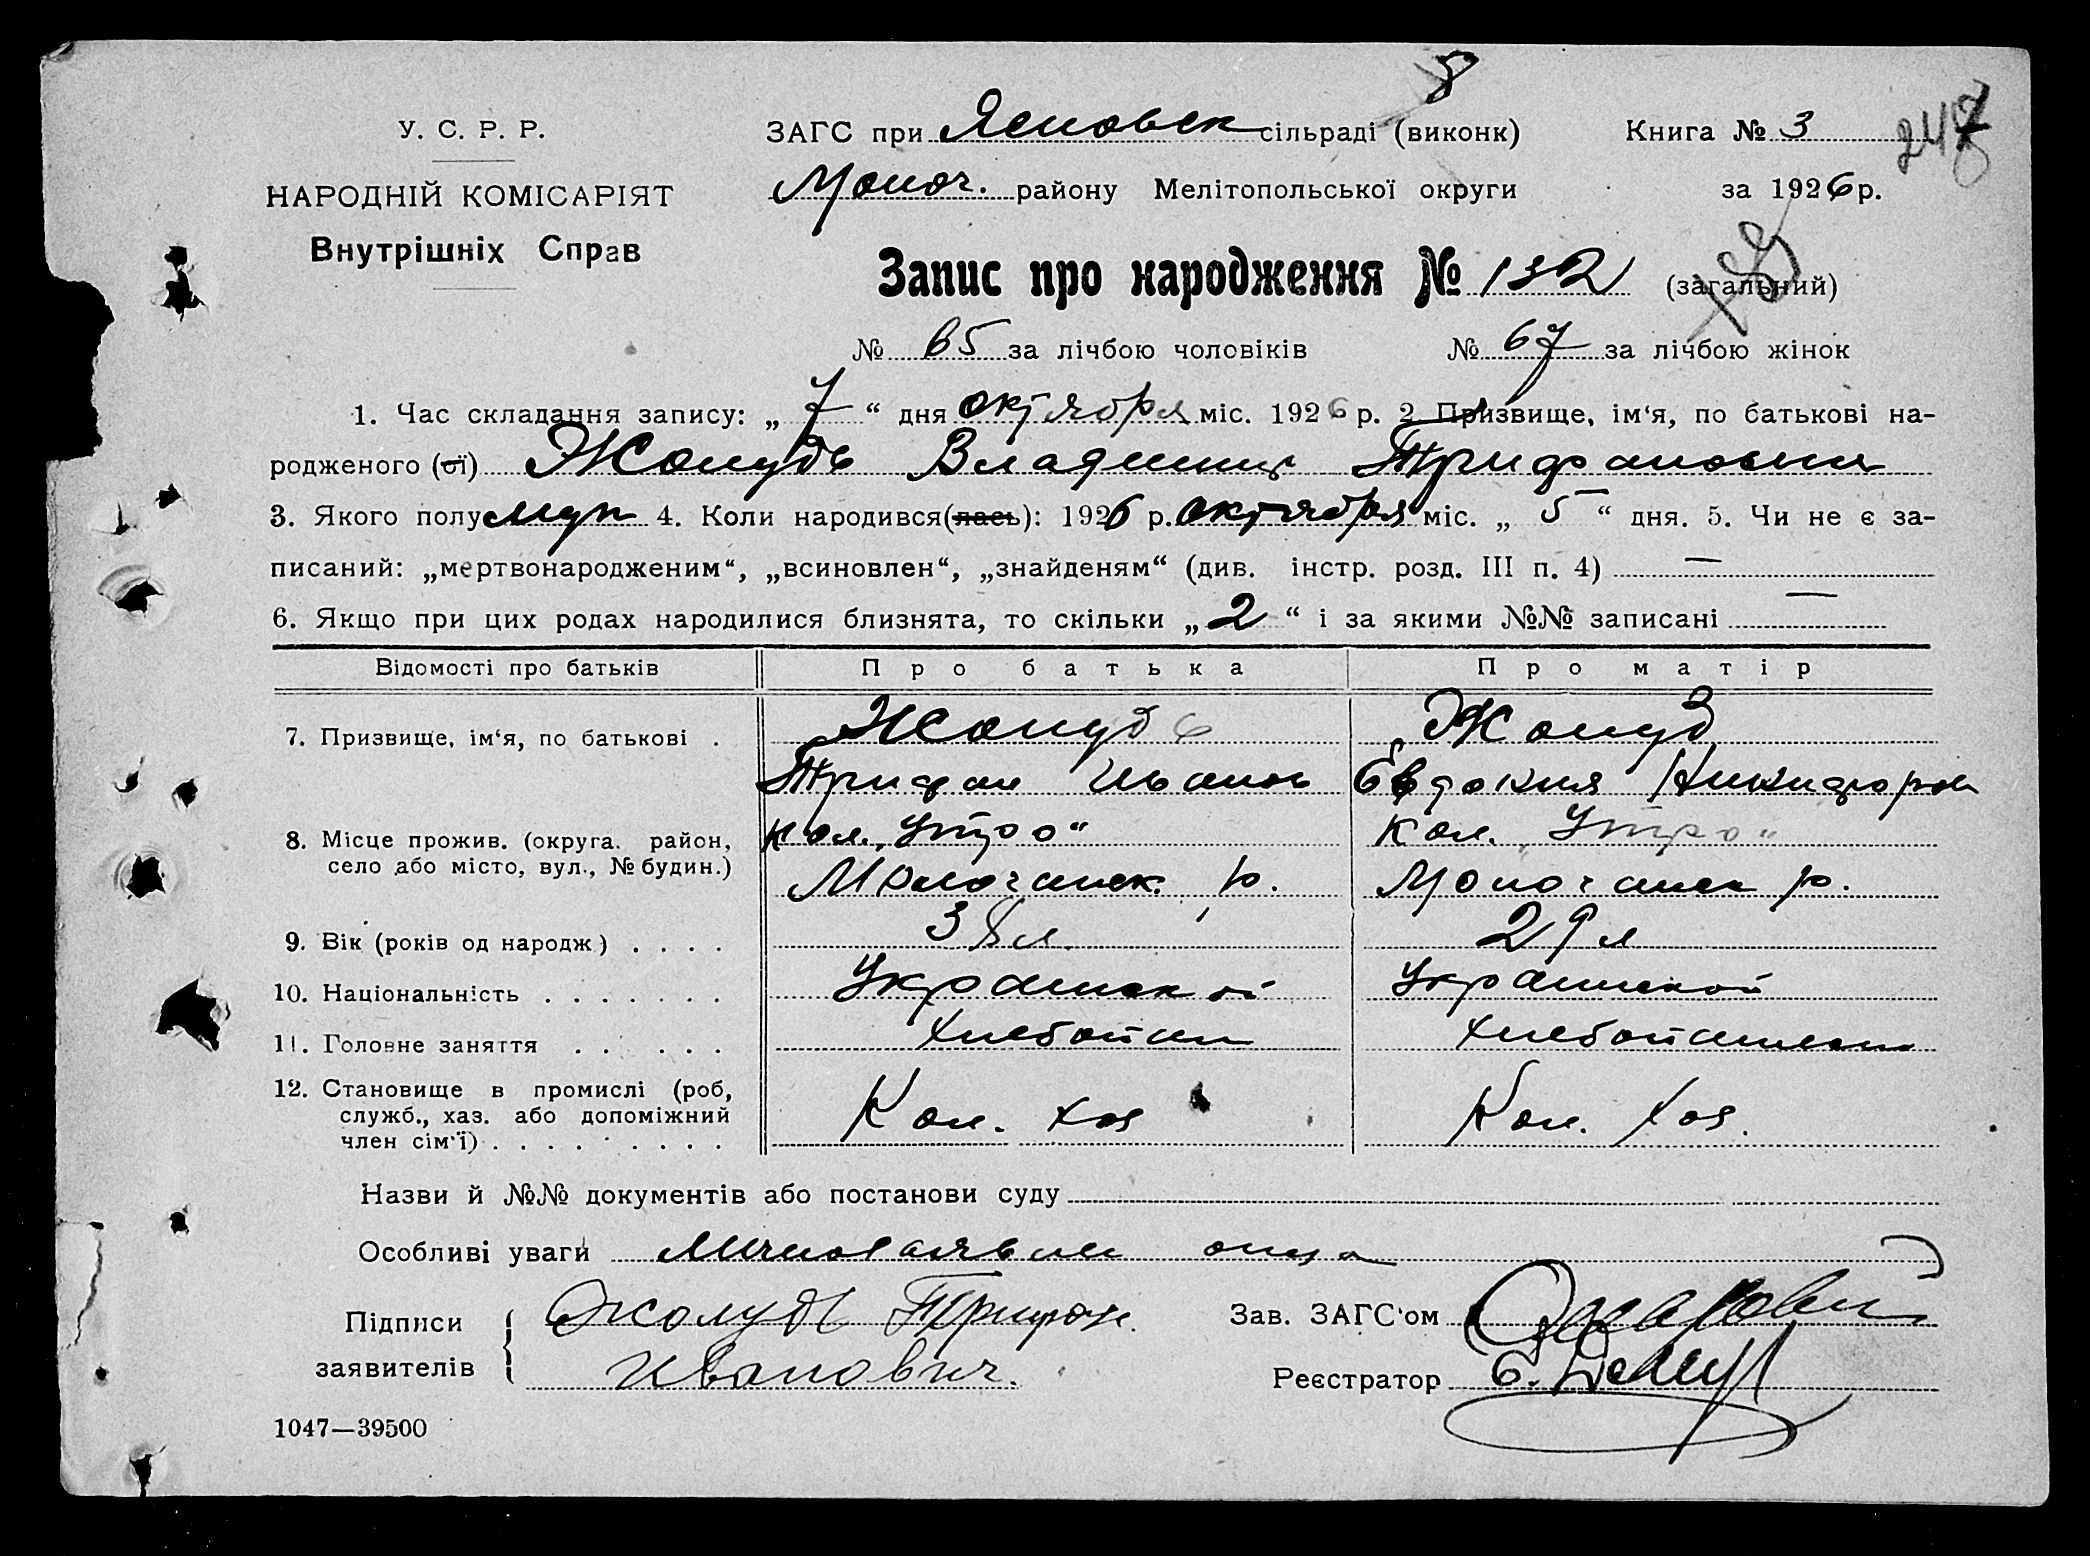 8
У. С. Р. Р.
ЗАГС при Ясиновск сільраді (виконк)
Книга № 3
247
НАРОДНІЙ КОМІСАРІЯТ
Молоч. району Мелітопольської округи
за 1926 р.
Внутрішніх Справ
Запис про народження № 132 (загальний)
№ 65 за лічбою чоловіків № 67 за лічбою жінок
1. Час складання запису: „ 7 “ дня октября міс. 1926 р. 2 Призвище, ім‘я, по батькові на-
родженого (ої) Жолудь Владимир Трифанович
3. Якого полу муж 4. Коли народився(лась): 1926 р. октября міс. „ 5 “ дня. 5. Чи не є за-
писаний: „мертвонародженим“, „всиновлен“, „знайденям“ (див. інстр. розд. III п. 4) —
6. Якщо при цих родах народилися близнята, то скільки „ 2 “ і за якими №№ записані —
Відомості про батьків Про батька Про матір
7. Призвище, ім‘я, по батькові . Жолудь Жолудь
Трифан Иванов Евдокия Никифоров
8. Місце прожив. (округа. район, кол. „Утро“ кол. „Утро“
село або місто, вул., № будин.) Молочанск. р. Молочанск р.
9. Вік (років од народж) . . . . 38 л. 29 л
10. Національність . . . . . . . Украинской Украинской
11. Головне заняття . . . . . . Хлебопаш Хлебопашеск
12. Становище в промислі (роб,
служб., хаз. або допоміжний Кол. хоз Кол. хоз.
член сім‘ї) . . . . . . . . .
Назви й №№ документів або постанови суду
Особливі уваги Личная явка отца
Підписи Жолудь Трифон
Зав. ЗАГС‘ом
заявителів Иванович.
Реєстратор
1047—39500